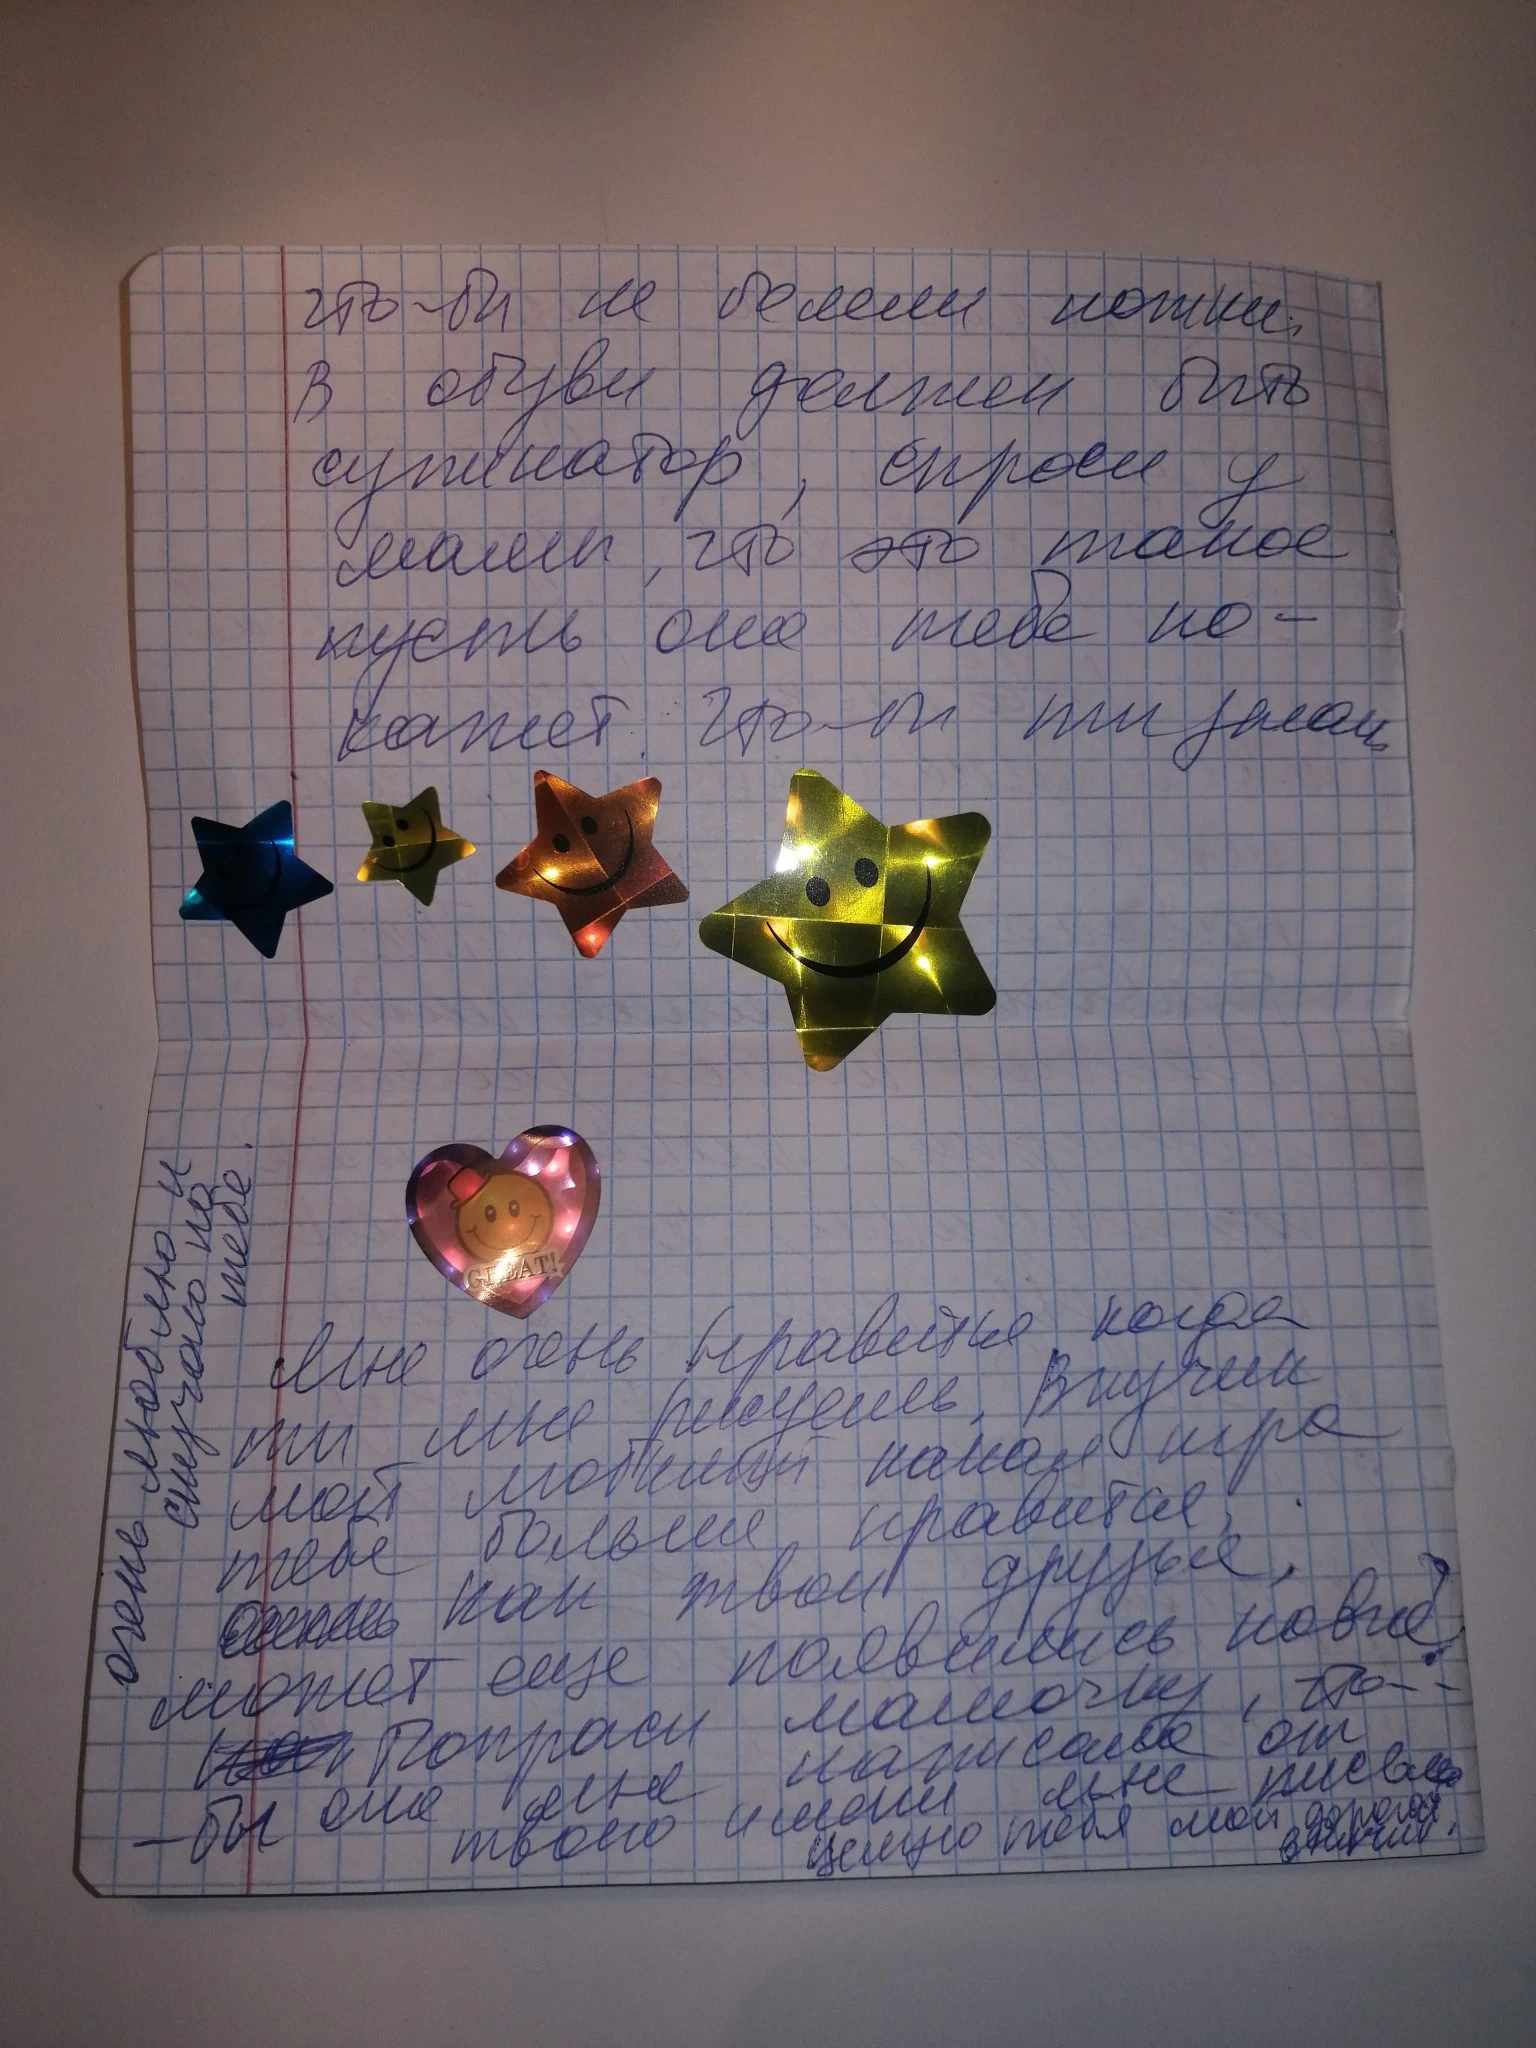 что-бы не болели ножки.
В обуви должен быть
супинатор, спроси у
мамы, что это такое
пусть она тебе по-
кажет. что-бы ты узнал
GREAT!
Мне очень нравится когда
ты мне рисуешь, внучек
мой любимый какая игра
тебе больше нравится,
как твои друзья,
может еще появились новые?
Попроси мамочку, что-
-бы она мне написала от
твоего имени мне писала
целую тебя мой дорогой
внучик.
очень люблю и
скучаю по
тебе.